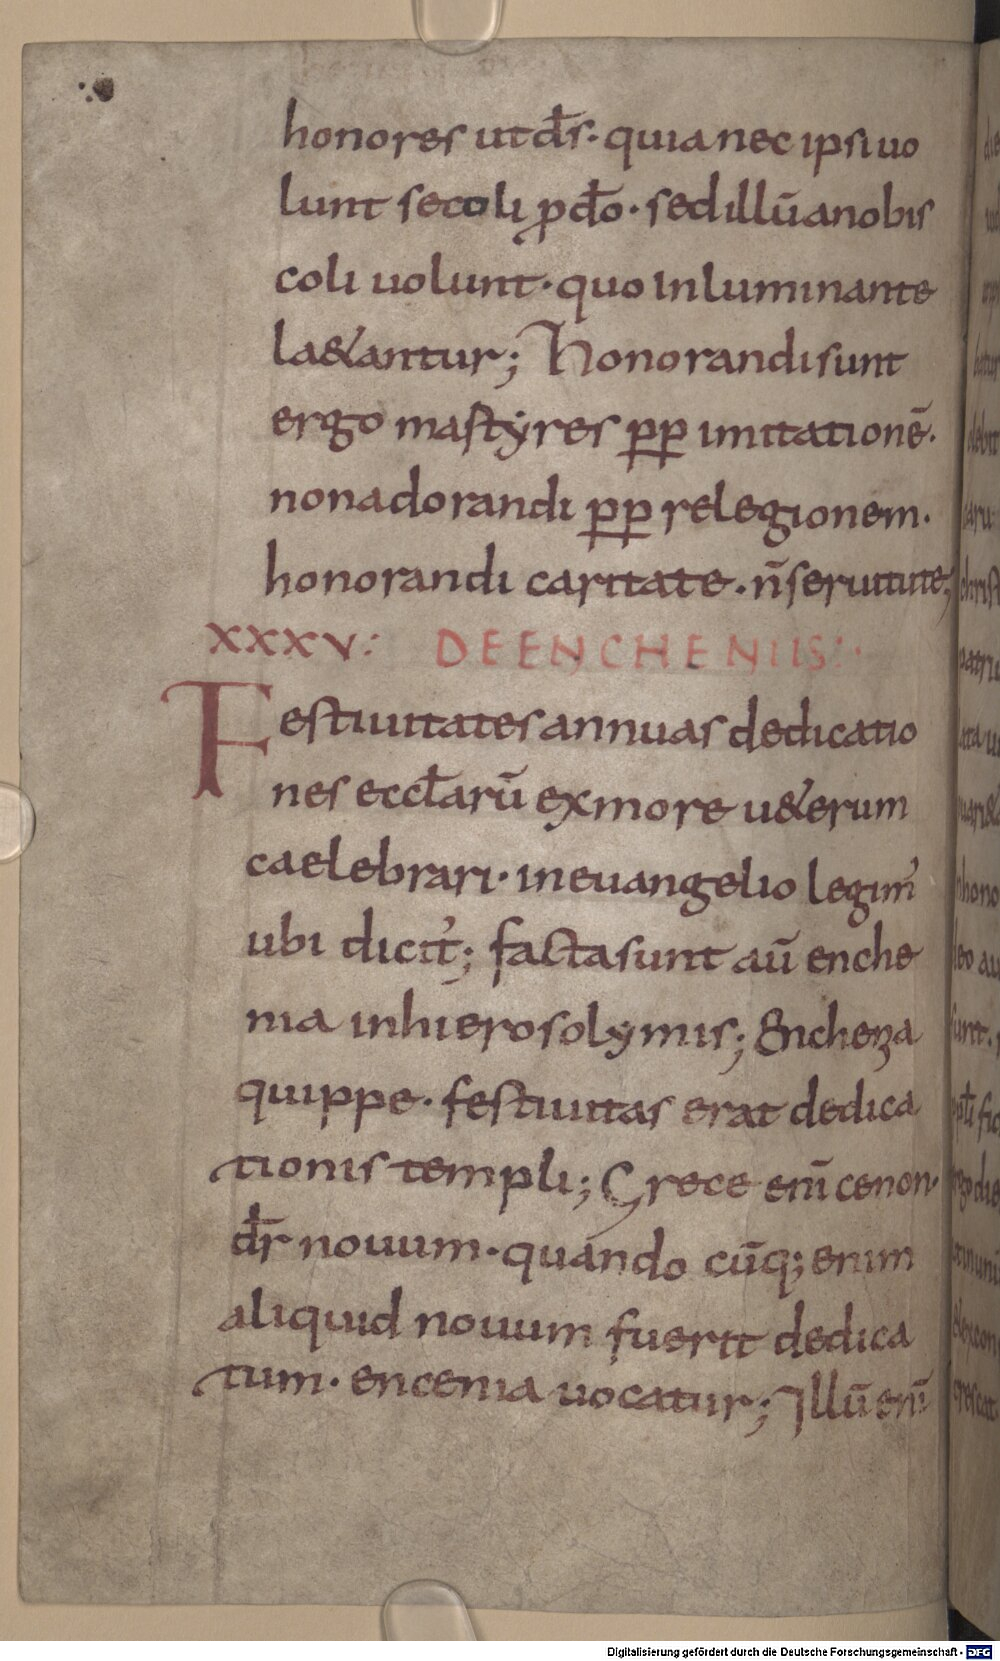 honores ut d̄s· quia nec ipsi uo
lunt se coli p̱ d̄o· sed illū a nobis
coli uolunt· quo inluminante
lae&antur; Honorandi sunt
ergo mastyres p̱p̱ imitationē·
non adorandi p̱p̱ relegionem·
honorandi caritate· n̄ seruitute;
XXXV: DE ENCHENIIS:·
Festiuitates annuas dedicatio
nes eccl̄arū ex more u&erum
caelebrari· in euangelio legim᾽
ubi dicit᾽; facta sunt aū enche
nia in hierosolymis; Enchenia
quippe· festiuitas erat dedica
tionis templi; Grece eni̅ cenon·
d̄r nouum· quando cūq; enim
aliquid nouum fuerit dedica
tum· encenia uocatur; Illū eni̅
Digitalisierung gefördert durch die Deutsche Forschungsgemeinschaft - DFG